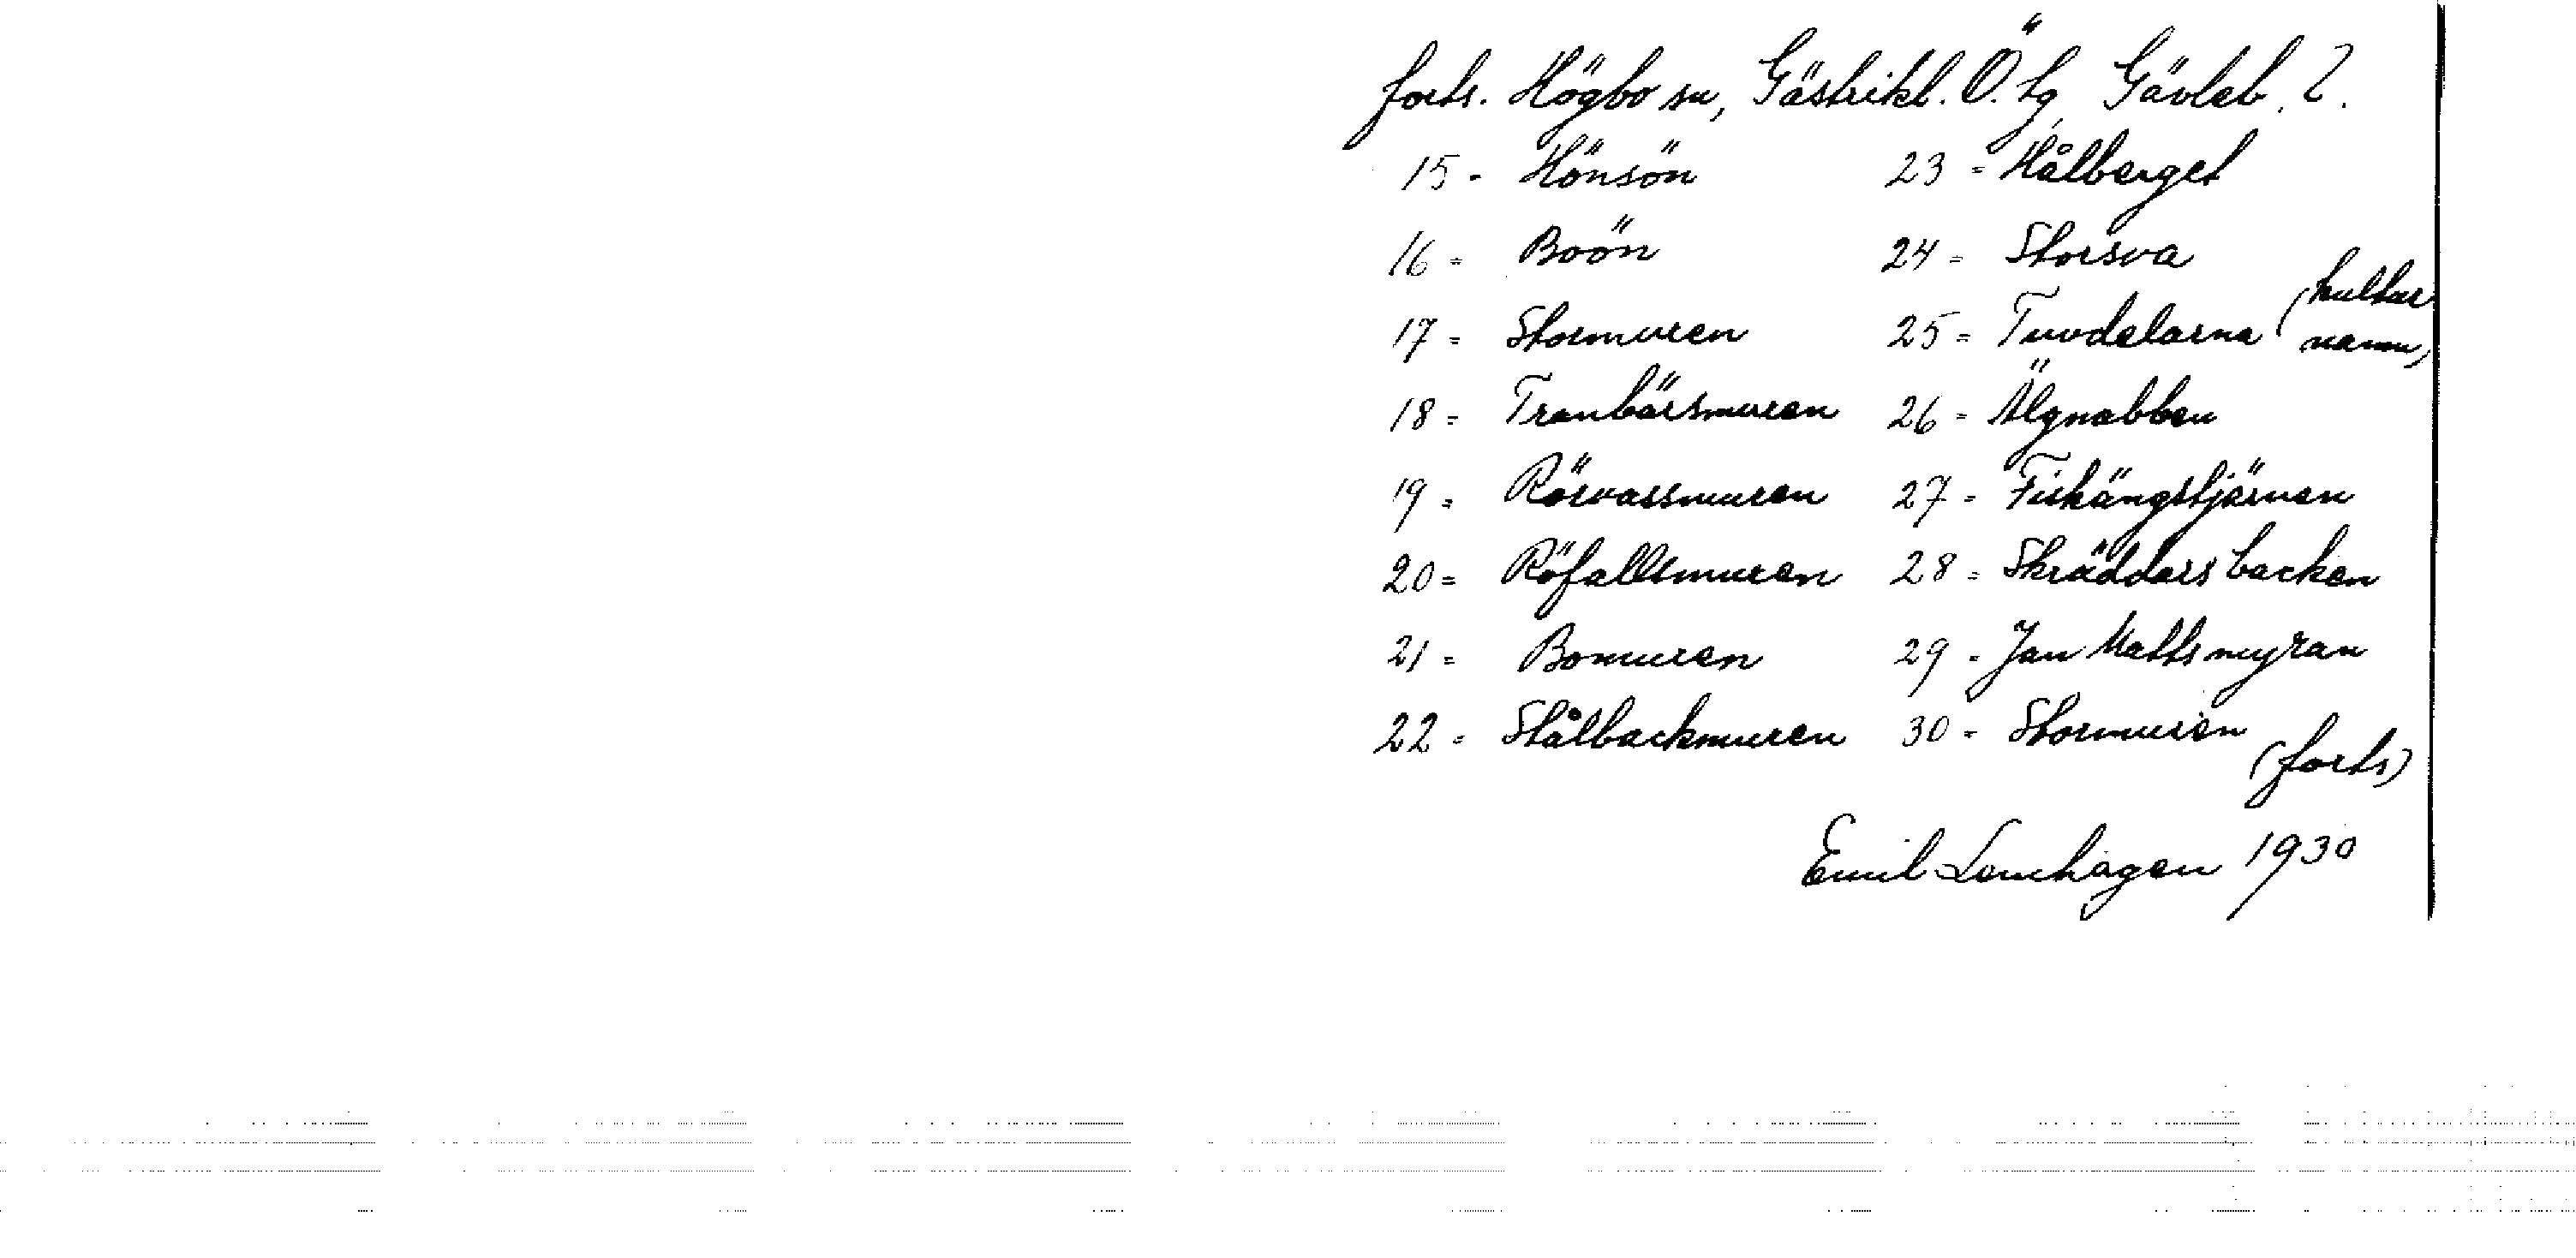 forts. Högbo sn, Gästrikl. Ö. tg, Gävleb. l.
15 - Hönsön
16 = Boön
17 = Stormuren
18 = Tranbärsmuren
19 = Rörvassmuren
20 = Röfallsmuren
21 = Bomuren
22 = Stålbackmuren
23 = Hålberget
24 = Storsva
25 = Tuvdelarna (kultur
namn)
26 = Älgnabben
27 = Fiskängstjärnen
28 = Skräddars backen
29 - Jan Matts myran
30 = Stormuren
(forts)
Emil Lenhagen 1930